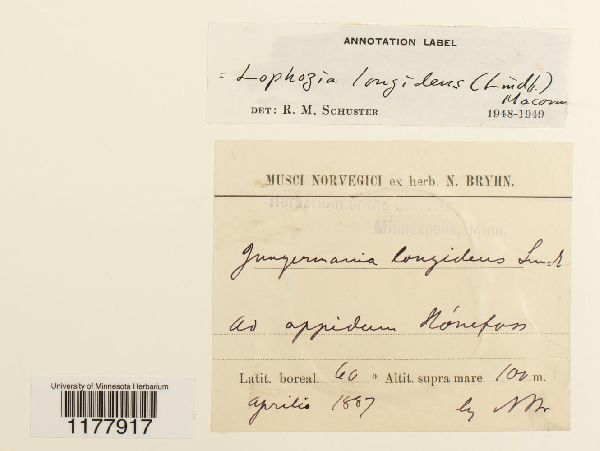 ANNOTATION LABEL
= Lophozia longidens (Lindb.)
Macoun
DET: R. M. SCHUSTER 1948-1949
MUSCI NORVEGICI ex herb. N. BRYHN.
Herbarium of the University
Minneapolis, Minn.
Jungermania longidens Lindb
Ad oppidum Hönefoss
Latit. boreal. 60 ° Altit. supra mare 100 m.
Aprilis 1887 leg NBr
University of Minnesota Herbarium
1177917